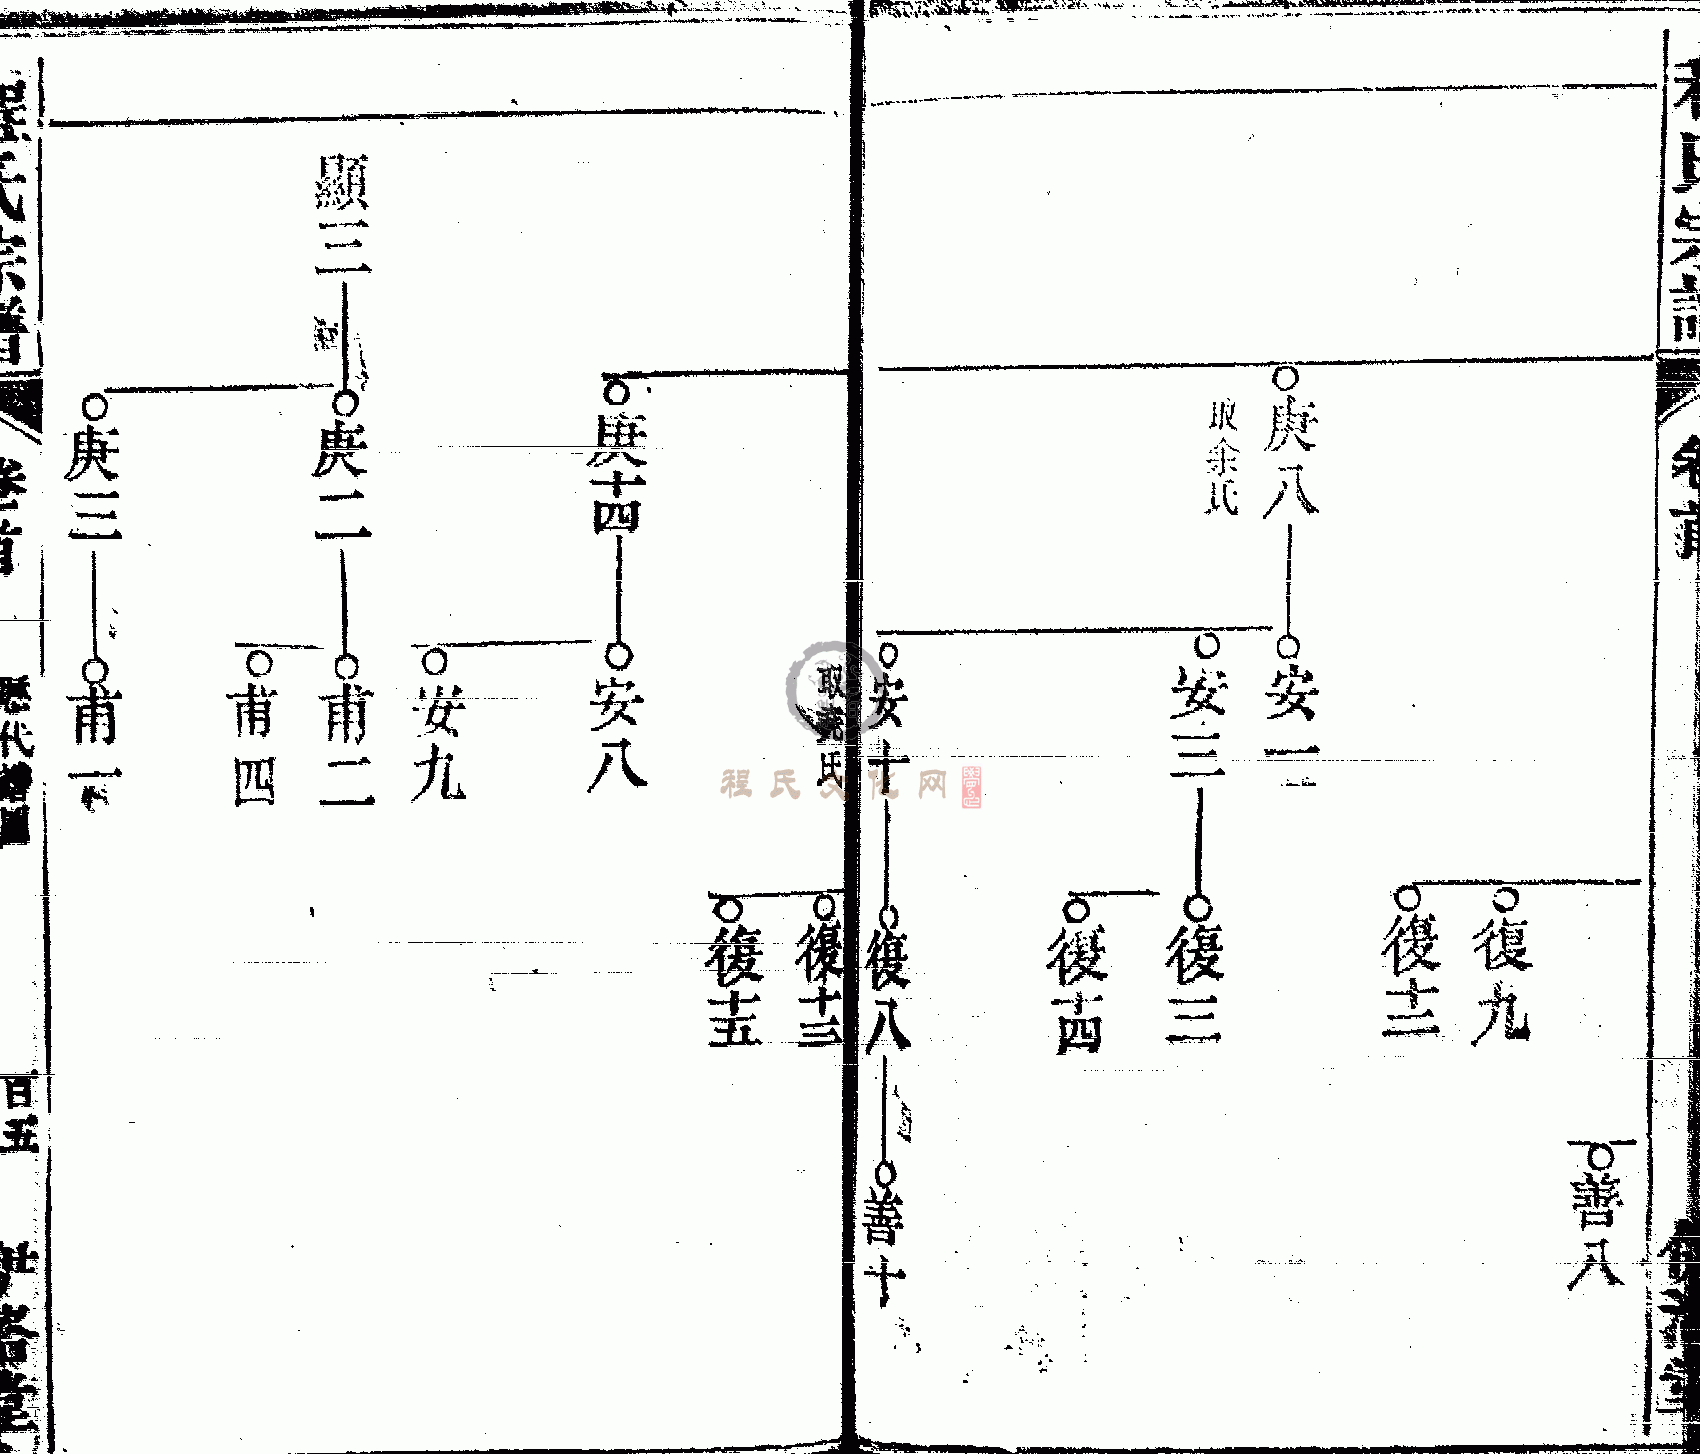 善八
復九
復十二
庚八
取余氏
安一
安三
復三
復十四
安十
取堯氏
復八
善十
復十三
復十五
庚十四
安八
安九
顯三
庚二
甫二
甫四
庚三
甫一
歷代總圖
百五
程氏文化网